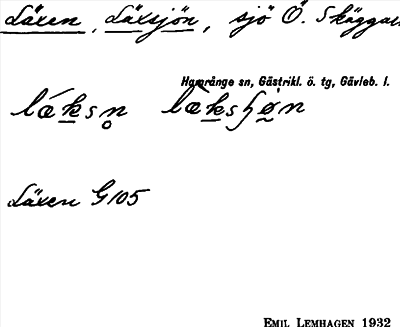 Läxen, Läxsjön, sjö Ö. Skäggar
Hamrånge sn, Gästrikl. ö. tg, Gävleb. l.
Läxen G105
EMIL LEMHAGEN 1932